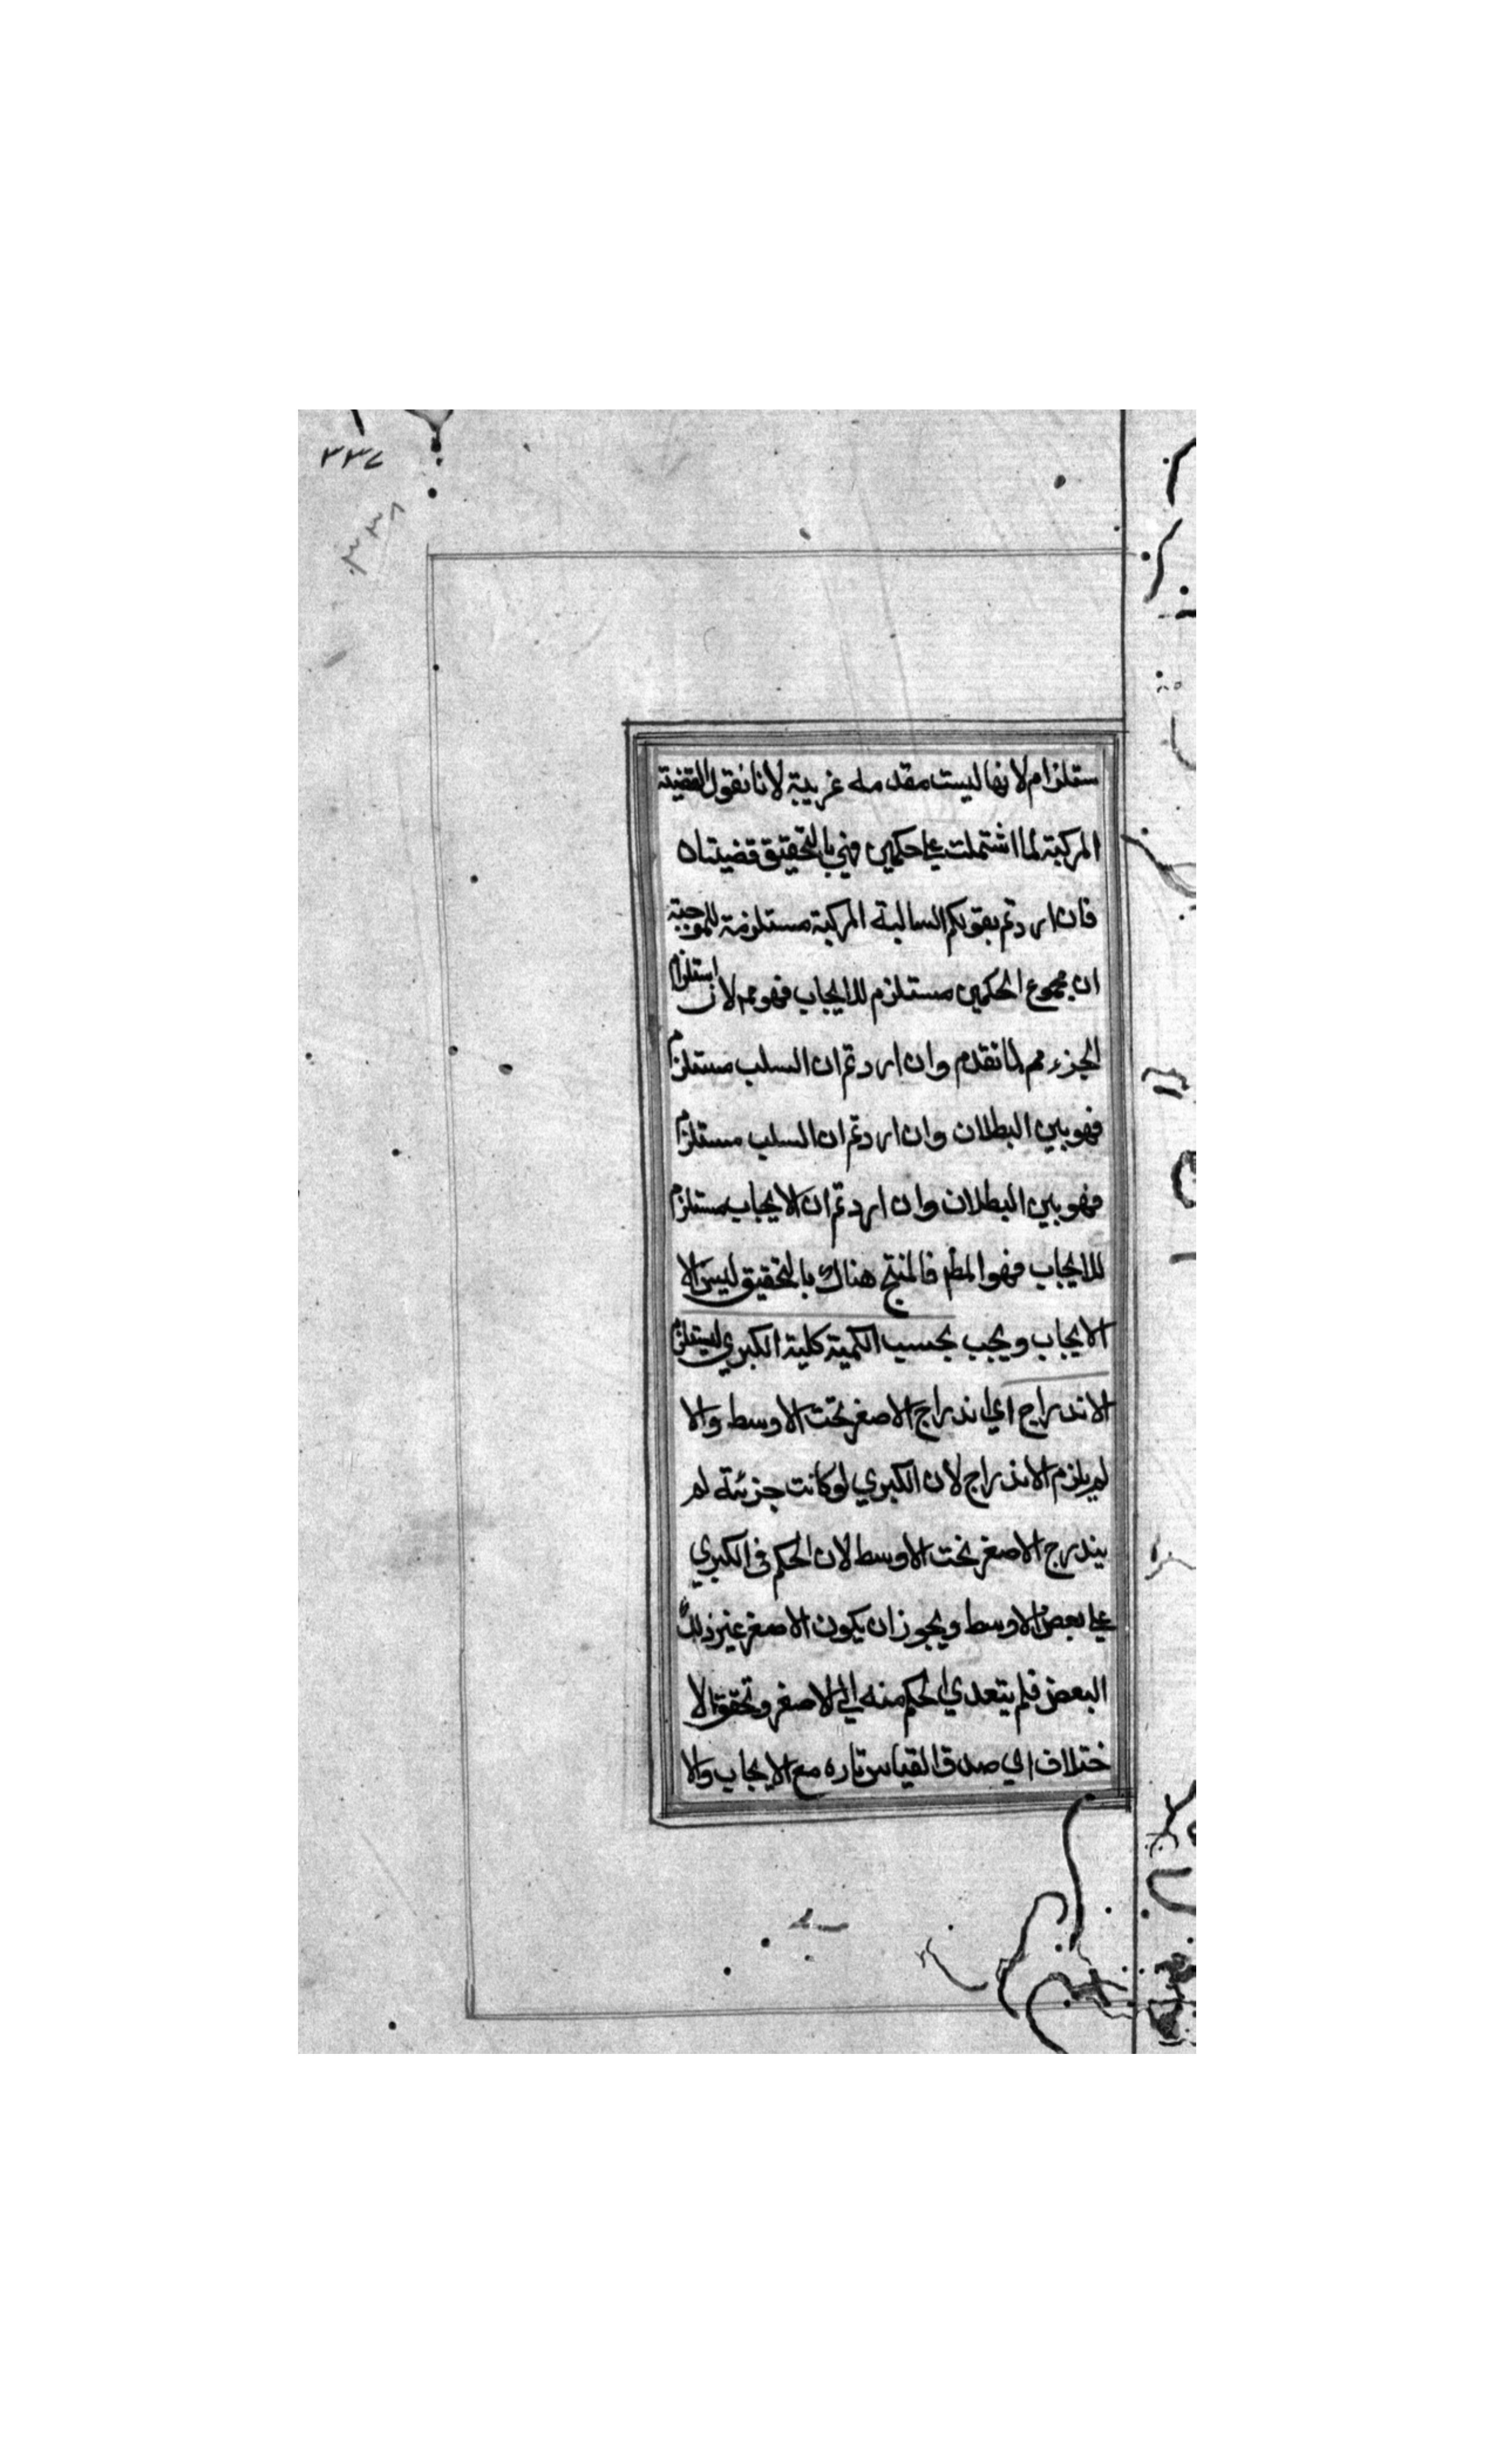 ٣٣٧
٣٣٨
ستلزام لانها ليست مقدمه غريبة لانا نقول القضية
المركبة لما اشتملت على حكمين فهي بالتحقيق قضيتان
فان اردتم بقولكم السالبة المركبة مستلزمة للموجبة
ان مجموع الحكمين مستلزم للايجاب فهو مم لان استلزام
الجزء مم لما تقدم وان اردتم ان السلب مستلزم
فهو بين البطلان وان اردتم ان السلب مستلزم
فهو بين البطلان وان اردتم ان الايجاب مستلزم
للايجاب فهو المط فالمنتج هناك بالتحقيق ليس الا
الايجاب ويجب بحسب الكمية كلية الكبري ليستلزم
الاندراج اي اندراج الاصغر تحت الاوسط والا
لم يلزم الاندراج لان الكبري لو كانت جزئة لم
يندرج الاصغر تحت الاوسط لان الحكم فى الكبري
على بعض الاوسط ويجوز ان يكون الاصغر غير ذلك
البعض فلم يتعدي الحكم منه الي الاصغر وتحقق الا
ختلاف اي صدق القياس تاره مع الايجاب والا